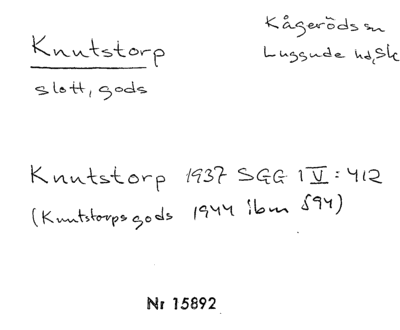 Knutstorp
slott, gods
Kågeröds sn
Luggude hd, Sk
Knutstorp 1937 SGG 1 V: 412
(Knutstorps gods 1944 ibm 594)
Nr 15892